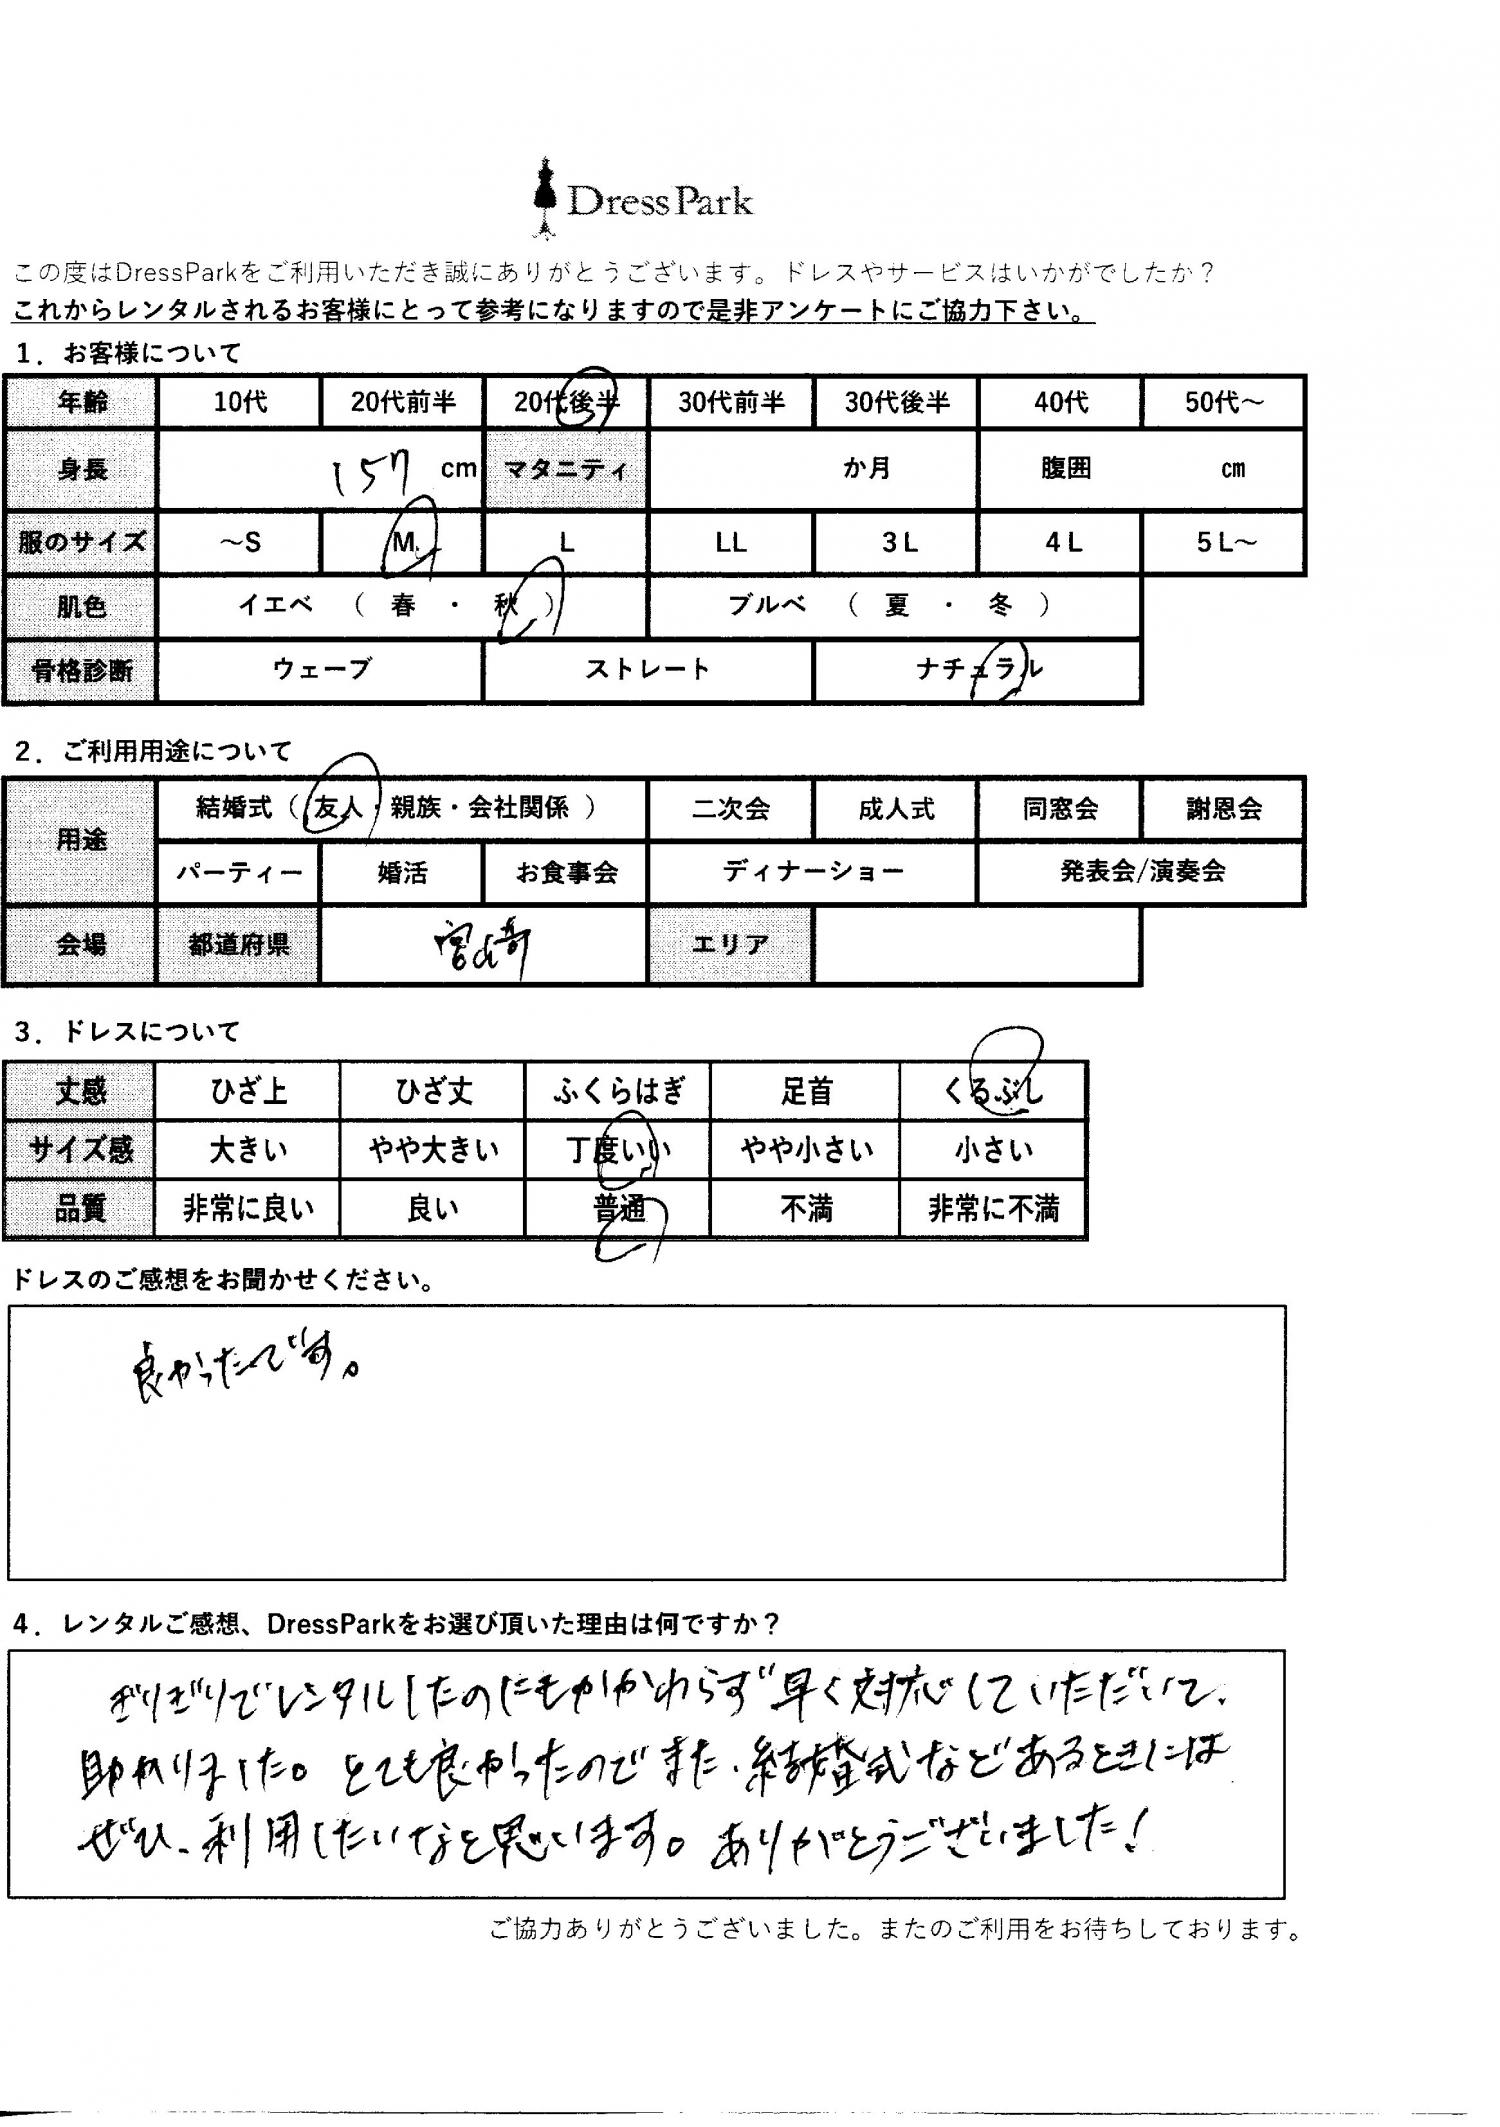 DressPark
この度はDressParkをご利用いただき誠にありがとうございます。ドレスやサービスはいかがでしたか？
これからレンタルされるお客様にとって参考になりますので是非アンケートにご協力下さい。
1．お客様について
年齢 10代 20代前半 20代後半 30代前半 30代後半 40代 50代～
身長 157 cm マタニティ か月 腹囲 cm
服のサイズ ～S M L LL 3L 4L 5L～
肌色 イエベ （ 春 ・ 秋 ） ブルベ （ 夏 ・ 冬 ）
骨格診断 ウェーブ ストレート ナチュラル
2．ご利用用途について
用途 結婚式（ 友人・親族・会社関係 ） 二次会 成人式 同窓会 謝恩会
パーティー 婚活 お食事会 ディナーショー 発表会/演奏会
会場 都道府県 宮崎 エリア
3．ドレスについて
丈感 ひざ上 ひざ丈 ふくらはぎ 足首 くるぶし
サイズ感 大きい やや大きい 丁度いい やや小さい 小さい
品質 非常に良い 良い 普通 不満 非常に不満
ドレスのご感想をお聞かせください。
良かったです。
4．レンタルご感想、DressParkをお選び頂いた理由は何ですか？
ぎりぎりでレンタルしたのにもかかわらず早く対応していただいて、
助かりました。とても良かったのでまた、結婚式などあるときには
ぜひ、利用したいなと思います。ありがとうございました！
ご協力ありがとうございました。またのご利用をお待ちしております。